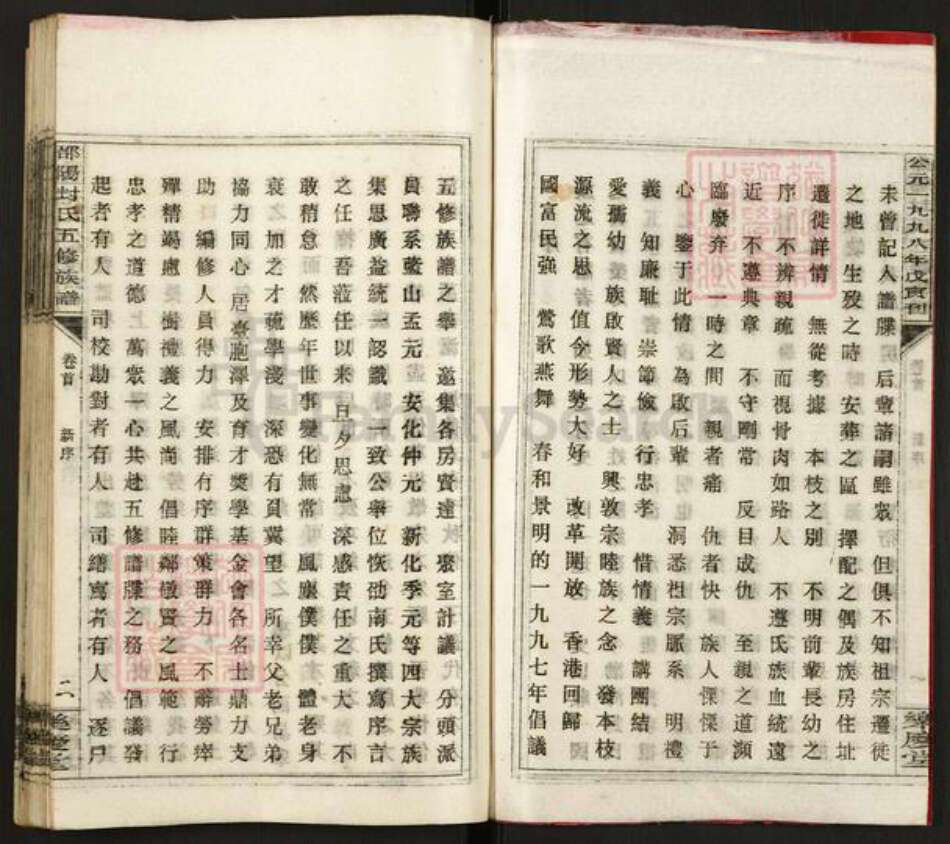 公元一九九八年戊寅刊
未曾記人譜牒 后輩諸嗣雖衆 但俱不知祖宗遷徙
之地 生歿之時 安葬之區 擇配之偶及族房住址
遷徙詳情 無從考據 本枝之別 不明前輩長幼之
序 不辨親疏 而視骨肉如路人 不遵氏族血統遠
近 不遵典章 不守剛常 反目成仇 至親之道瀕
臨廢弃 一時之間 親者痛 仇者快 族人慄慄于
心 鑒于此情 為啟后輩 洞悉祖宗脈系 明禮
義 知廉耻 崇節儉 行忠孝 惜情義 講團結
愛孺幼 族啟賢人之士 興敦宗睦族之念 發本枝
源流之思 值今形勢大好 改革開放 香港回歸
國富民強 鶯歌燕舞 春和景明的一九九七年倡議
五修族譜之舉 邀集各房賢達 聚室計議 分頭派
員 聯系藍山孟元 安化仲元 新化季元等四大宗族
集思廣益 統一認識 一致公舉位恢劭南氏撰寫序言
之任 吾蒞任以來 日夕思慮 深感責任之重大 不
敢稍怠 然歷年世事變化無常 風塵僕僕 體老身
衰 加之才疏學淺 深恐有負冀望 所幸父老兄弟
協力同心 居臺胞澤及育才獎學基金會各名士鼎力支
助 編修人員得力 安排有序 群策群力 不辭勞瘁
殫精竭慮 樹禮義之風尚 倡睦鄰敬賢之風範 行
忠孝之道德 萬衆一心共赴五修譜牒之務 倡議發
起者有人 司校勘對者有人 司繕寫者有人 逐戶
邵陽封氏五修族譜
卷首
新序
二